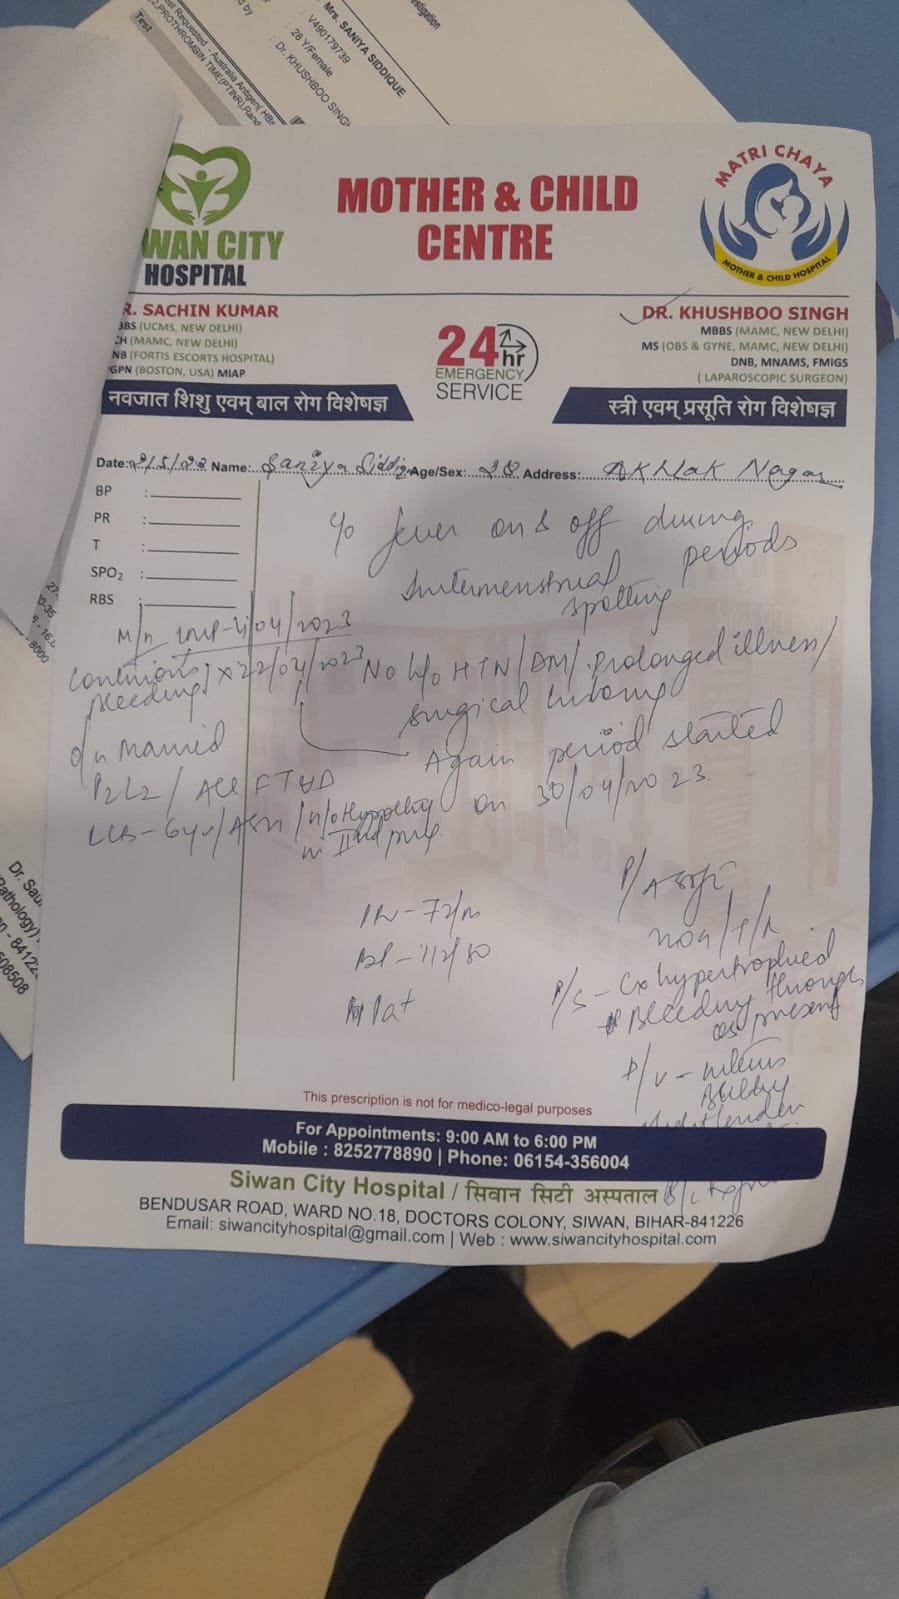 estigation
Mrs. SANIYA SIDDIQUE
: V490179739
: 28 Y/Female
: Dr. KHUSHBOO SINGH
d by
st Requested - Australia Antigen( HBs
2,PROTHROMBIN TIME(PTINR),Rand
Test
WAN CITY
HOSPITAL
MOTHER & CHILD
CENTRE
MATRI CHAYA
MOTHER & CHILD HOSPITAL
R. SACHIN KUMAR
BBS (UCMS, NEW DELHI)
CH (MAMC, NEW DELHI)
NB (FORTIS ESCORTS HOSPITAL)
GPN (BOSTON, USA) MIAP
नवजात शिशु एवम् बाल रोग विशेषज्ञ
24hr
EMERGENCY
SERVICE
DR. KHUSHBOO SINGH
MBBS (MAMC, NEW DELHI)
MS (OBS & GYNE, MAMC, NEW DELHI)
DNB, MNAMS, FMIGS
( LAPAROSCOPIC SURGEON)
स्त्री एवम् प्रसूति रोग विशेषज्ञ
Date: Name: Saniya Siddiq Age/Sex: 28 Address: Akhlak Nagar
BP :
PR :
T :
SPO2 :
RBS :
fever on & off during
periods
Intermenstrual
spotting
LMP- /04/2023
Continious
bleeding x 22/04/2023
No H/o HTN/DM/ prolonged illness/
surgical history
Again period started
on 30/04/2023.
Married
P2L2 / All FTVD
LCB-6yr/
in IInd preg
PR-72/m
BP-112/80
P/A soft
P/S - Cx hypertrophied
Bleeding through
os present
P/V - uterus
Bulky
27-
0-35
- 16.0
- 8000
Dr. Sau
Pathology)
n - 8412
508508
This prescription is not for medico-legal purposes
For Appointments: 9:00 AM to 6:00 PM
Mobile : 8252778890 | Phone: 06154-356004
Siwan City Hospital / सिवान सिटी अस्पताल
BENDUSAR ROAD, WARD NO.18, DOCTORS COLONY, SIWAN, BIHAR-841226
Email: siwancityhospital@gmail.com | Web : www.siwancityhospital.com